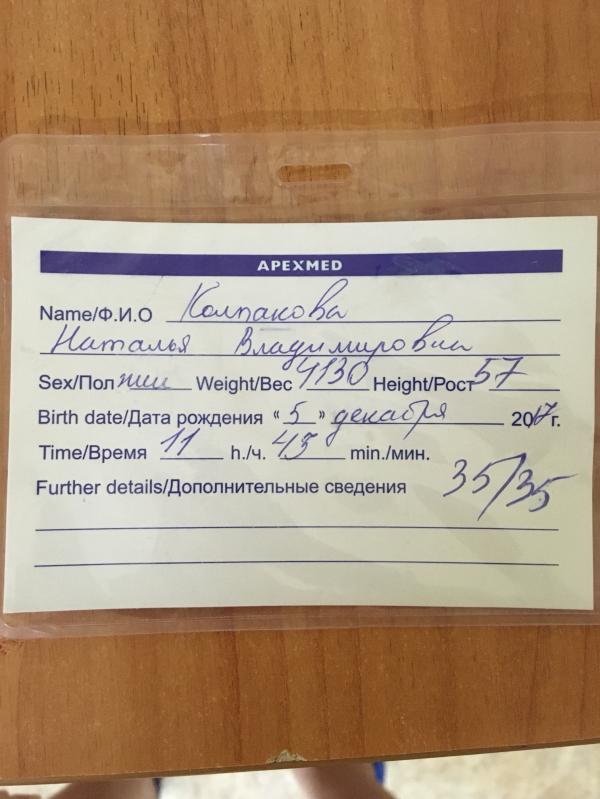 APEXMED
Name/Ф.И.О Колпакова
Наталья Владимировна
Sex/Пол жен Weight/Вес 4130 Height/Рост 57
Birth date/Дата рождения “5” декабря 2017г.
Time/Время 11 h./ч. 45 min./мин.
Further details/Дополнительные сведения 35/35